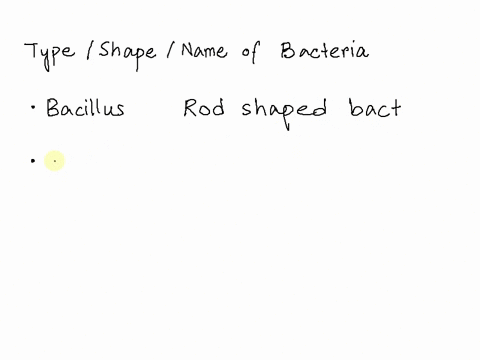 Type / Shape / Name of Bacteria
• Bacillus Rod shaped bact
•